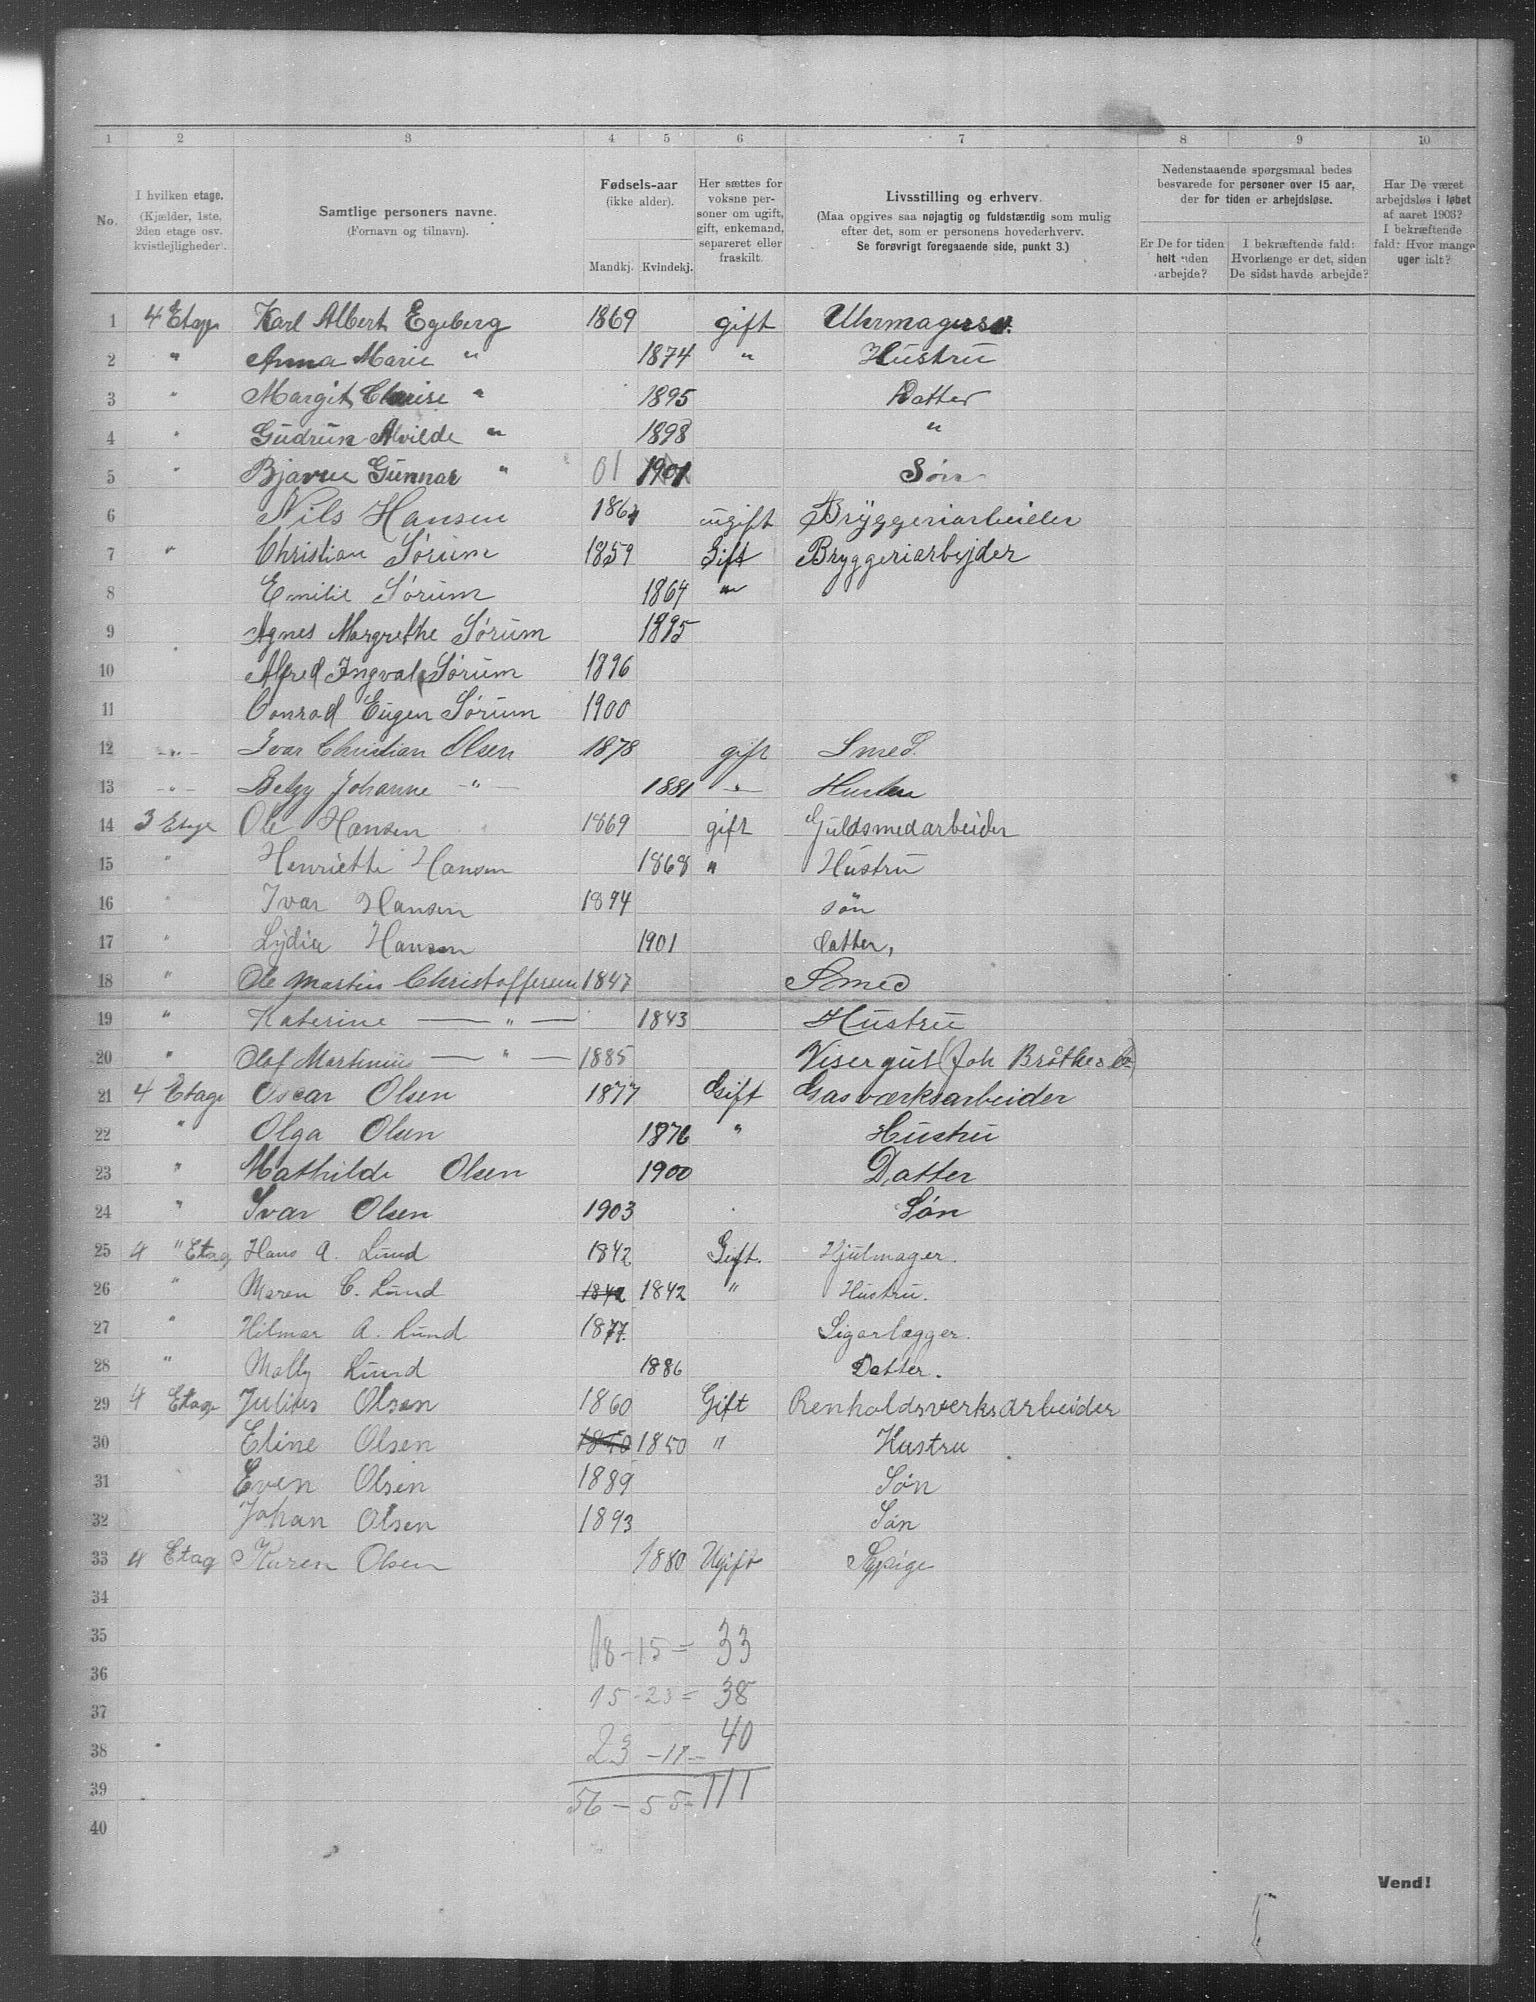 1 2 3 4 5 6 7 8 9 10
No.
I hvilken etage.
(Kjælder, 1ste,
2den etage osv.
kvistlejligheder).
Samtlige personers navne.
(Fornavn og tilnavn).
Fødsels-aar
(ikke alder).
Mandkj. Kvindekj.
Her sættes for
voksne per-
soner om ugift,
gift, enkemand,
separeret eller
fraskilt.
Livsstilling og erhverv.
(Maa opgives saa nøjagtig og fuldstændig som mulig
efter det, som er personens hovederhverv.
Se forøvrigt foregaaende side, punkt 3.)
Nedenstaaende spørgsmaal bedes
besvarede for personer over 15 aar,
der for tiden er arbejdsløse.
Er De for tiden
helt uden
arbejde?
I bekræftende fald:
Hvorlænge er det, siden
De sidst havde arbejde?
Har De været
arbejdsløs i løbet
af aaret 1903?
I bekræftende
fald: Hvor mange
uger ialt?
1 4 Etage Karl Albert Egeberg 1869 gift
2 " Anna Marie " 1874 " Hustru
3 " Margit " 1895 Datter
4 " Gudrun Alvilde " 1898 "
5 " Bjarne Gunnar " 01 1901 Søn
6 Nils Hansen 1864 ugift Bryggeriarbeider
7 " Christian Sørum 1859 Gift Bryggeriarbejder
8 Emilie Sørum 1864 "
9 Agnes Margrethe Sørum 1895
10 Alfred Ingval Sørum 1896
11 Conrad Eugen Sørum 1900
12 -"- Ivar Christian Olsen 1878 gift Smed.
13 -"- Betzy Johanne -"- 1881 -"- Hustru
14 3 Etage Ole Hansen 1869 gift Guldsmedarbeider
15 " Henriette Hansen 1868 " Hustru
16 " Ivar Hansen 1894 søn
17 " Lydia Hansen 1901 datter,
18 " Ole Martin Christoffersen 1847 Smed
19 " Katerine — " — 1843 Hustru
20 " Olaf Martinius — " — 1885 Visergut (Joh Bråthe & Co)
21 4 Etage Oscar Olsen 1877 Gift Gasværksarbeider
22 " Olga Olsen 1876 " Hustru
23 " Mathilde Olsen 1900 Datter
24 " Ivar Olsen 1903 Søn
25 4 " Etag Hans A. Lund 1842 Gift. Hjulmager.
26 " Maren C. Lund 1842 1842 " Hustru.
27 " Hilmar A. Lund 1877. Sigarlægger.
28 " Molly Lund 1886 Datter.
29 4 Etage Julius Olsen 1860 Gift Renholdsverksarbeider
30 Eline Olsen 1850 1850 " Hustru
31 Even Olsen 1889 Søn
32 Johan Olsen 1893 Søn
33 4 Etag Karen Olsen 1880 Ugift Sypige
34
35 18 - 15 = 33
36
37 15 - 23 = 38
38 23 - 17 - 40
39 56 - 55 - 111
40
Vend!